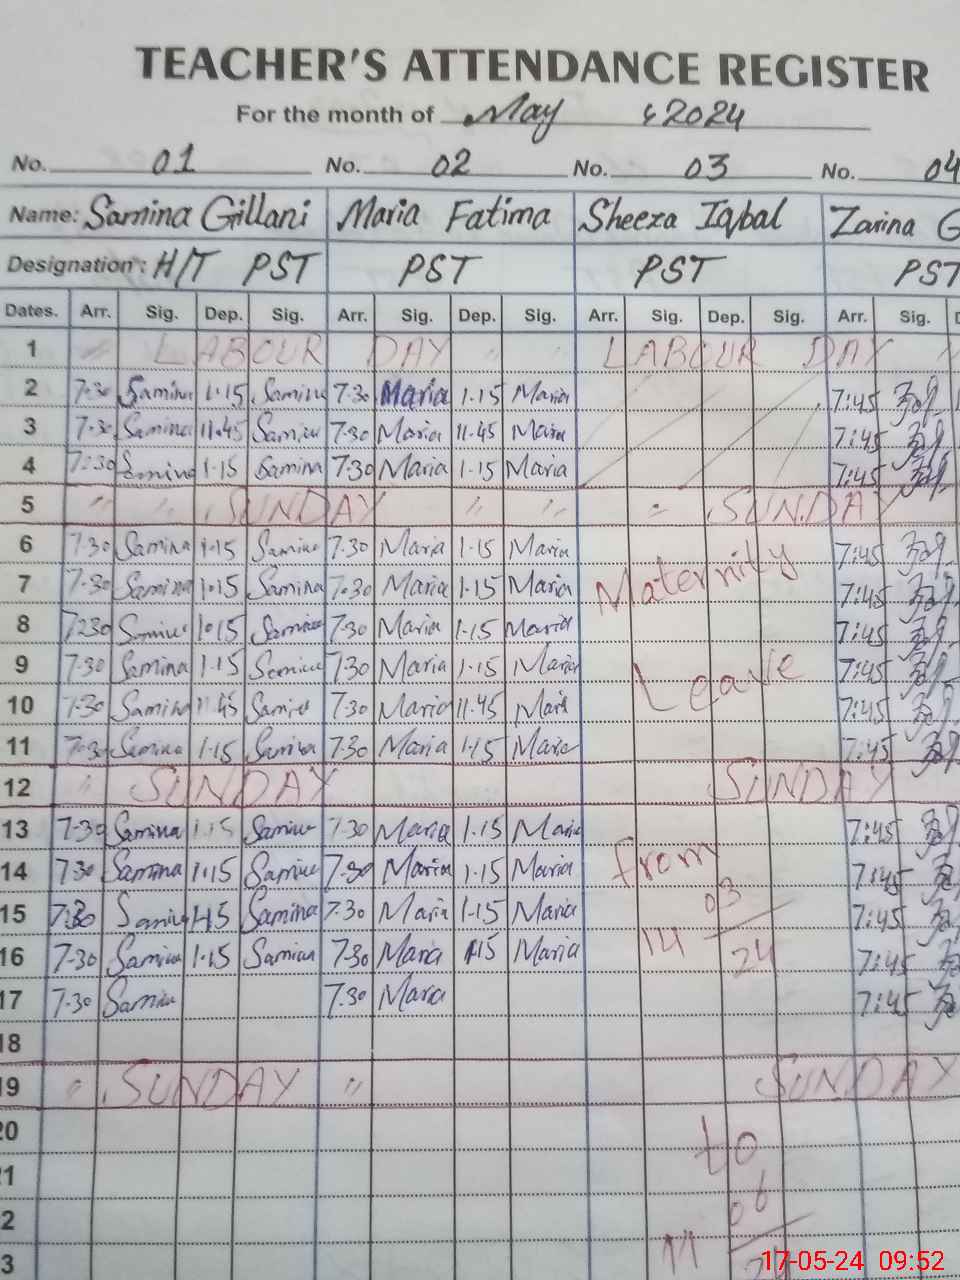 TEACHER'S ATTENDANCE REGISTER
For the month of May 2024
No. 01 No. 02 No. 03 No. 04
Name: Samina Gillani Maria Fatima Sheeza Iqbal Zarina G
Designation: H/T PST PST PST PST
Dates. Arr. Sig. Dep. Sig. Arr. Sig. Dep. Sig. Arr. Sig. Dep. Sig. Arr. Sig. D
1 " LABOUR DAY " " LABOUR DAY "
2 7.30 Samina 1.15 Samina 7.30 Maria 1.15 Maria 7:45
3 7.30 Samina 11.45 Samina 7.30 Maria 11.45 Maria 7:45
4 7:30 Samina 1.15 Samina 7.30 Maria 1.15 Maria 7:45
5 " " SUNDAY " " " SUNDAY
6 7.30 Samina 1.15 Samina 7.30 Maria 1.15 Maria 7:45
7 7.30 Samina 1.15 Samina 7.30 Maria 1.15 Maria Maternity 7:45
8 7.30 Samina 1.15 Samina 7.30 Maria 1.15 Maria 7:45
9 7.30 Samina 1.15 Samina 7.30 Maria 1.15 Maria Leave 7:45
10 7.30 Samina 11.45 Samina 7.30 Maria 11.45 Maria 7:45
11 7.30 Samina 1.15 Samina 7.30 Maria 1.15 Maria 7:45
12 " SUNDAY SUNDAY
13 7.30 Samina 1.15 Samina 7.30 Maria 1.15 Maria 7:45
14 7.30 Samina 1.15 Samina 7.30 Maria 1.15 Maria from 7:45
15 7:30 Samina 1.15 Samina 7.30 Maria 1.15 Maria 03 7:45
16 7.30 Samina 1.15 Samina 7.30 Maria 1.15 Maria 14 24 7:45
17 7.30 Samina 7.30 Maria 7:45
18
19 " SUNDAY " SUNDAY
20 to
21
2 06
3 24
17-05-24 09:52